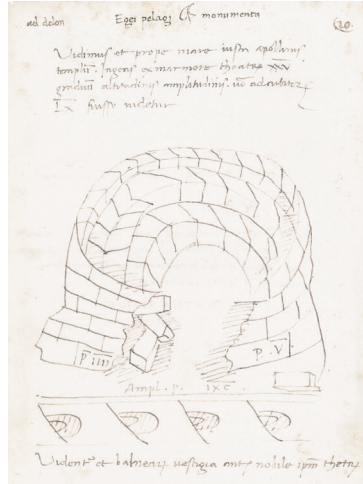 ad delon
Egei pelagi monumenta
20
Vidimus et prope mare iuxta apollinis
templũ. Ingens ex marmore theatrũ XXXV
graduũ altitudinis amplitudinis uõ ad cubitos
IX fuisse videtur
p. IIII
p. V
Ampl. p. IXC.
Vident~ et balnearũ vestigia ante nobile ipm̃